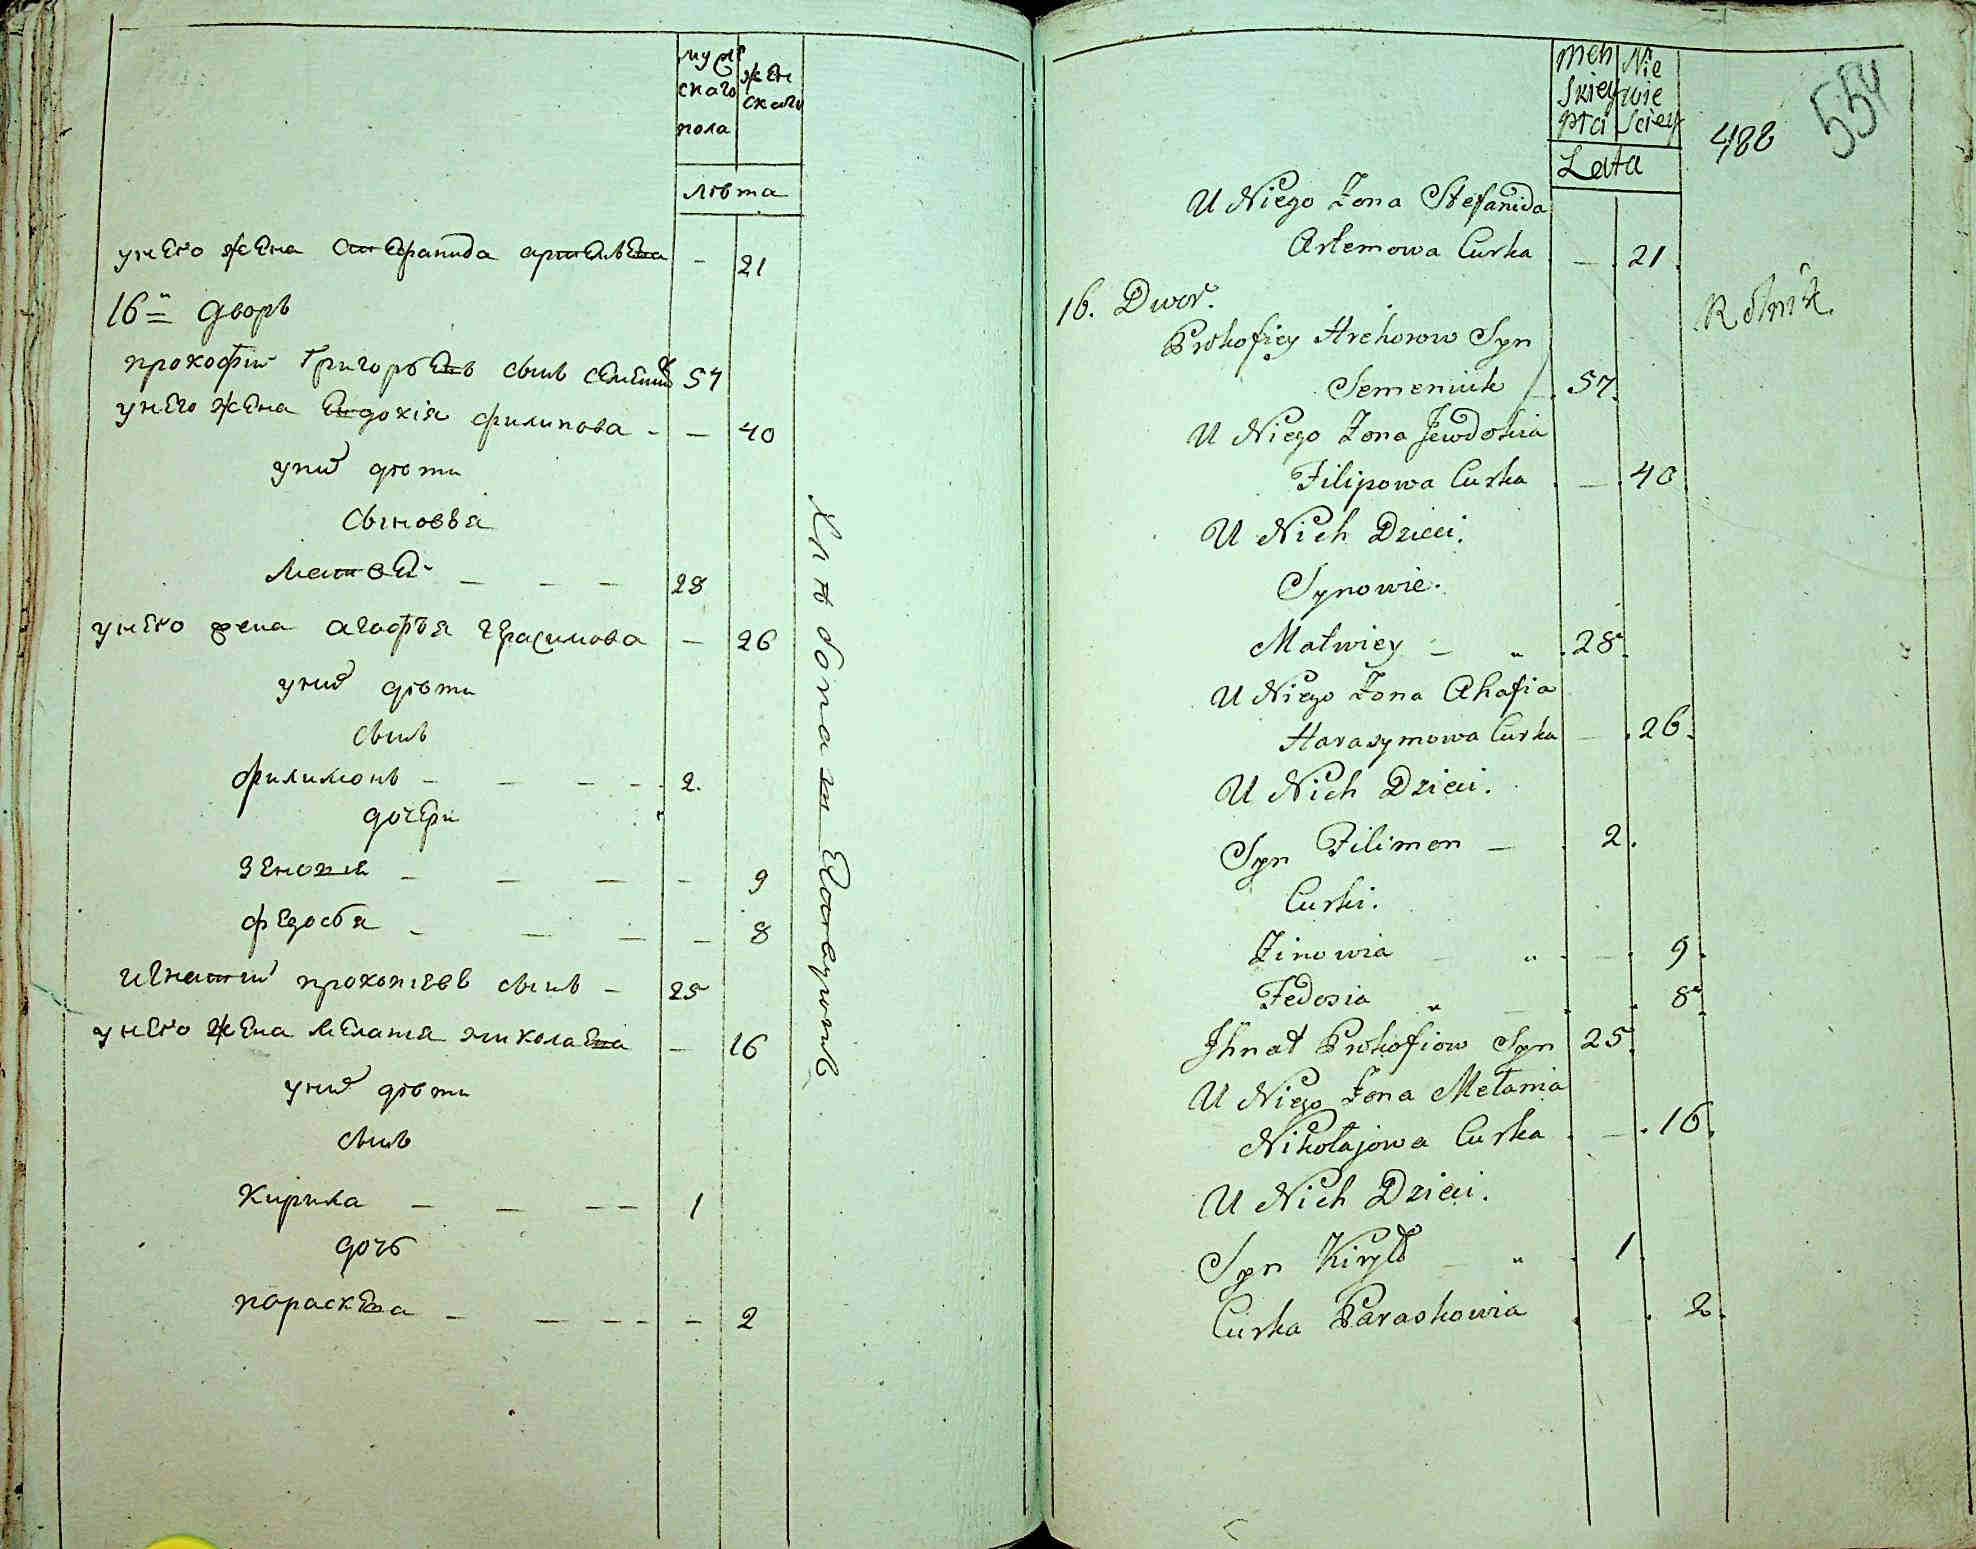 мужскаго пола
женскаго
лѣта
унего жена Стефанида артемьева - 21
16й дворъ
прокофий Григорьевъ сынъ семенюкъ 57
унего жена Евдохія филипова - - 40
уних дѣти
Сыновья
Матвей - - - 28
унего жена агафья Герасимова - 26
уних дѣти
сынъ
филимонъ - - - - 2.
дочери
Зеновия - - - - 9
федосья - - - - 8
игнатий прокопіевъ сынъ - 25
унего жена Меланя николаева - 16
уних дѣти
сынъ
Кирила - - - - 1
дочь
параскева - - - - - 2
Хлѣбопашествуютъ
Męh
skiey
płci
Nie
wie
sciey
Lata
488
554
U Niego Żona Stefanida
Artemowa Curka — 21.
16. Dwor.
Rolnik.
Prokofiey Hrehorow Syn
Semeniuk 57.
U Niego Żona Jewdokia
Filipowa Curka — 40.
U Nich Dzieci.
Synowie.
Matwiey — „ 28.
U Niego Żona Ahafia
Harasymowa Curka — 26.
U Nich Dzieci.
Syn Filimon — 2.
Curki.
Zinowia — „ — 9.
Fedosia „ — 8.
Ihnat Prokofiow Syn 25.
U Niego Żona Mełania
Nikołajowa Curka — 16.
U Nich Dzieci.
Syn Kiryło — „ 1.
Curka Paraskowia — 2.